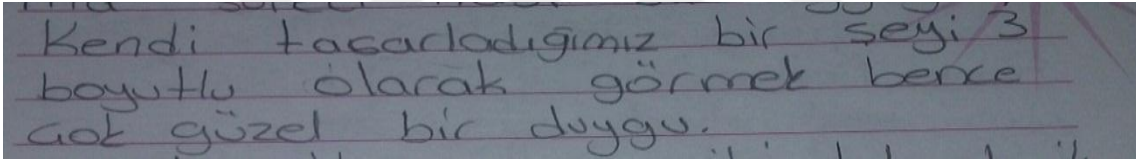 Kendi tasarladığımız bir şeyi 3
boyutlu olarak görmek bence
çok güzel bir duygu.